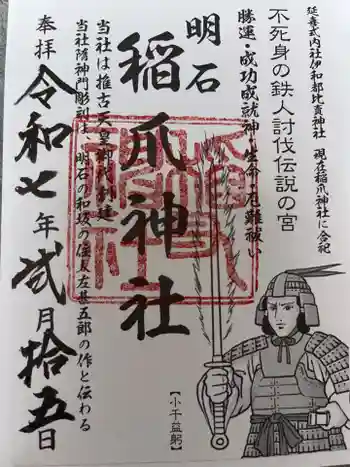 延喜式内社伊和都比賣神社 現在稲爪神社に合祀
不死身の鉄人討伐伝説の宮
勝運・成功成就神 生命・厄難祓い
明石
稲爪神社
【小千益躬】
当社は推古天皇御代創建
当社随神門彫刻は、明石の和坂の住人左甚五郎の作と伝わる
奉拝 令和七年弐月拾五日